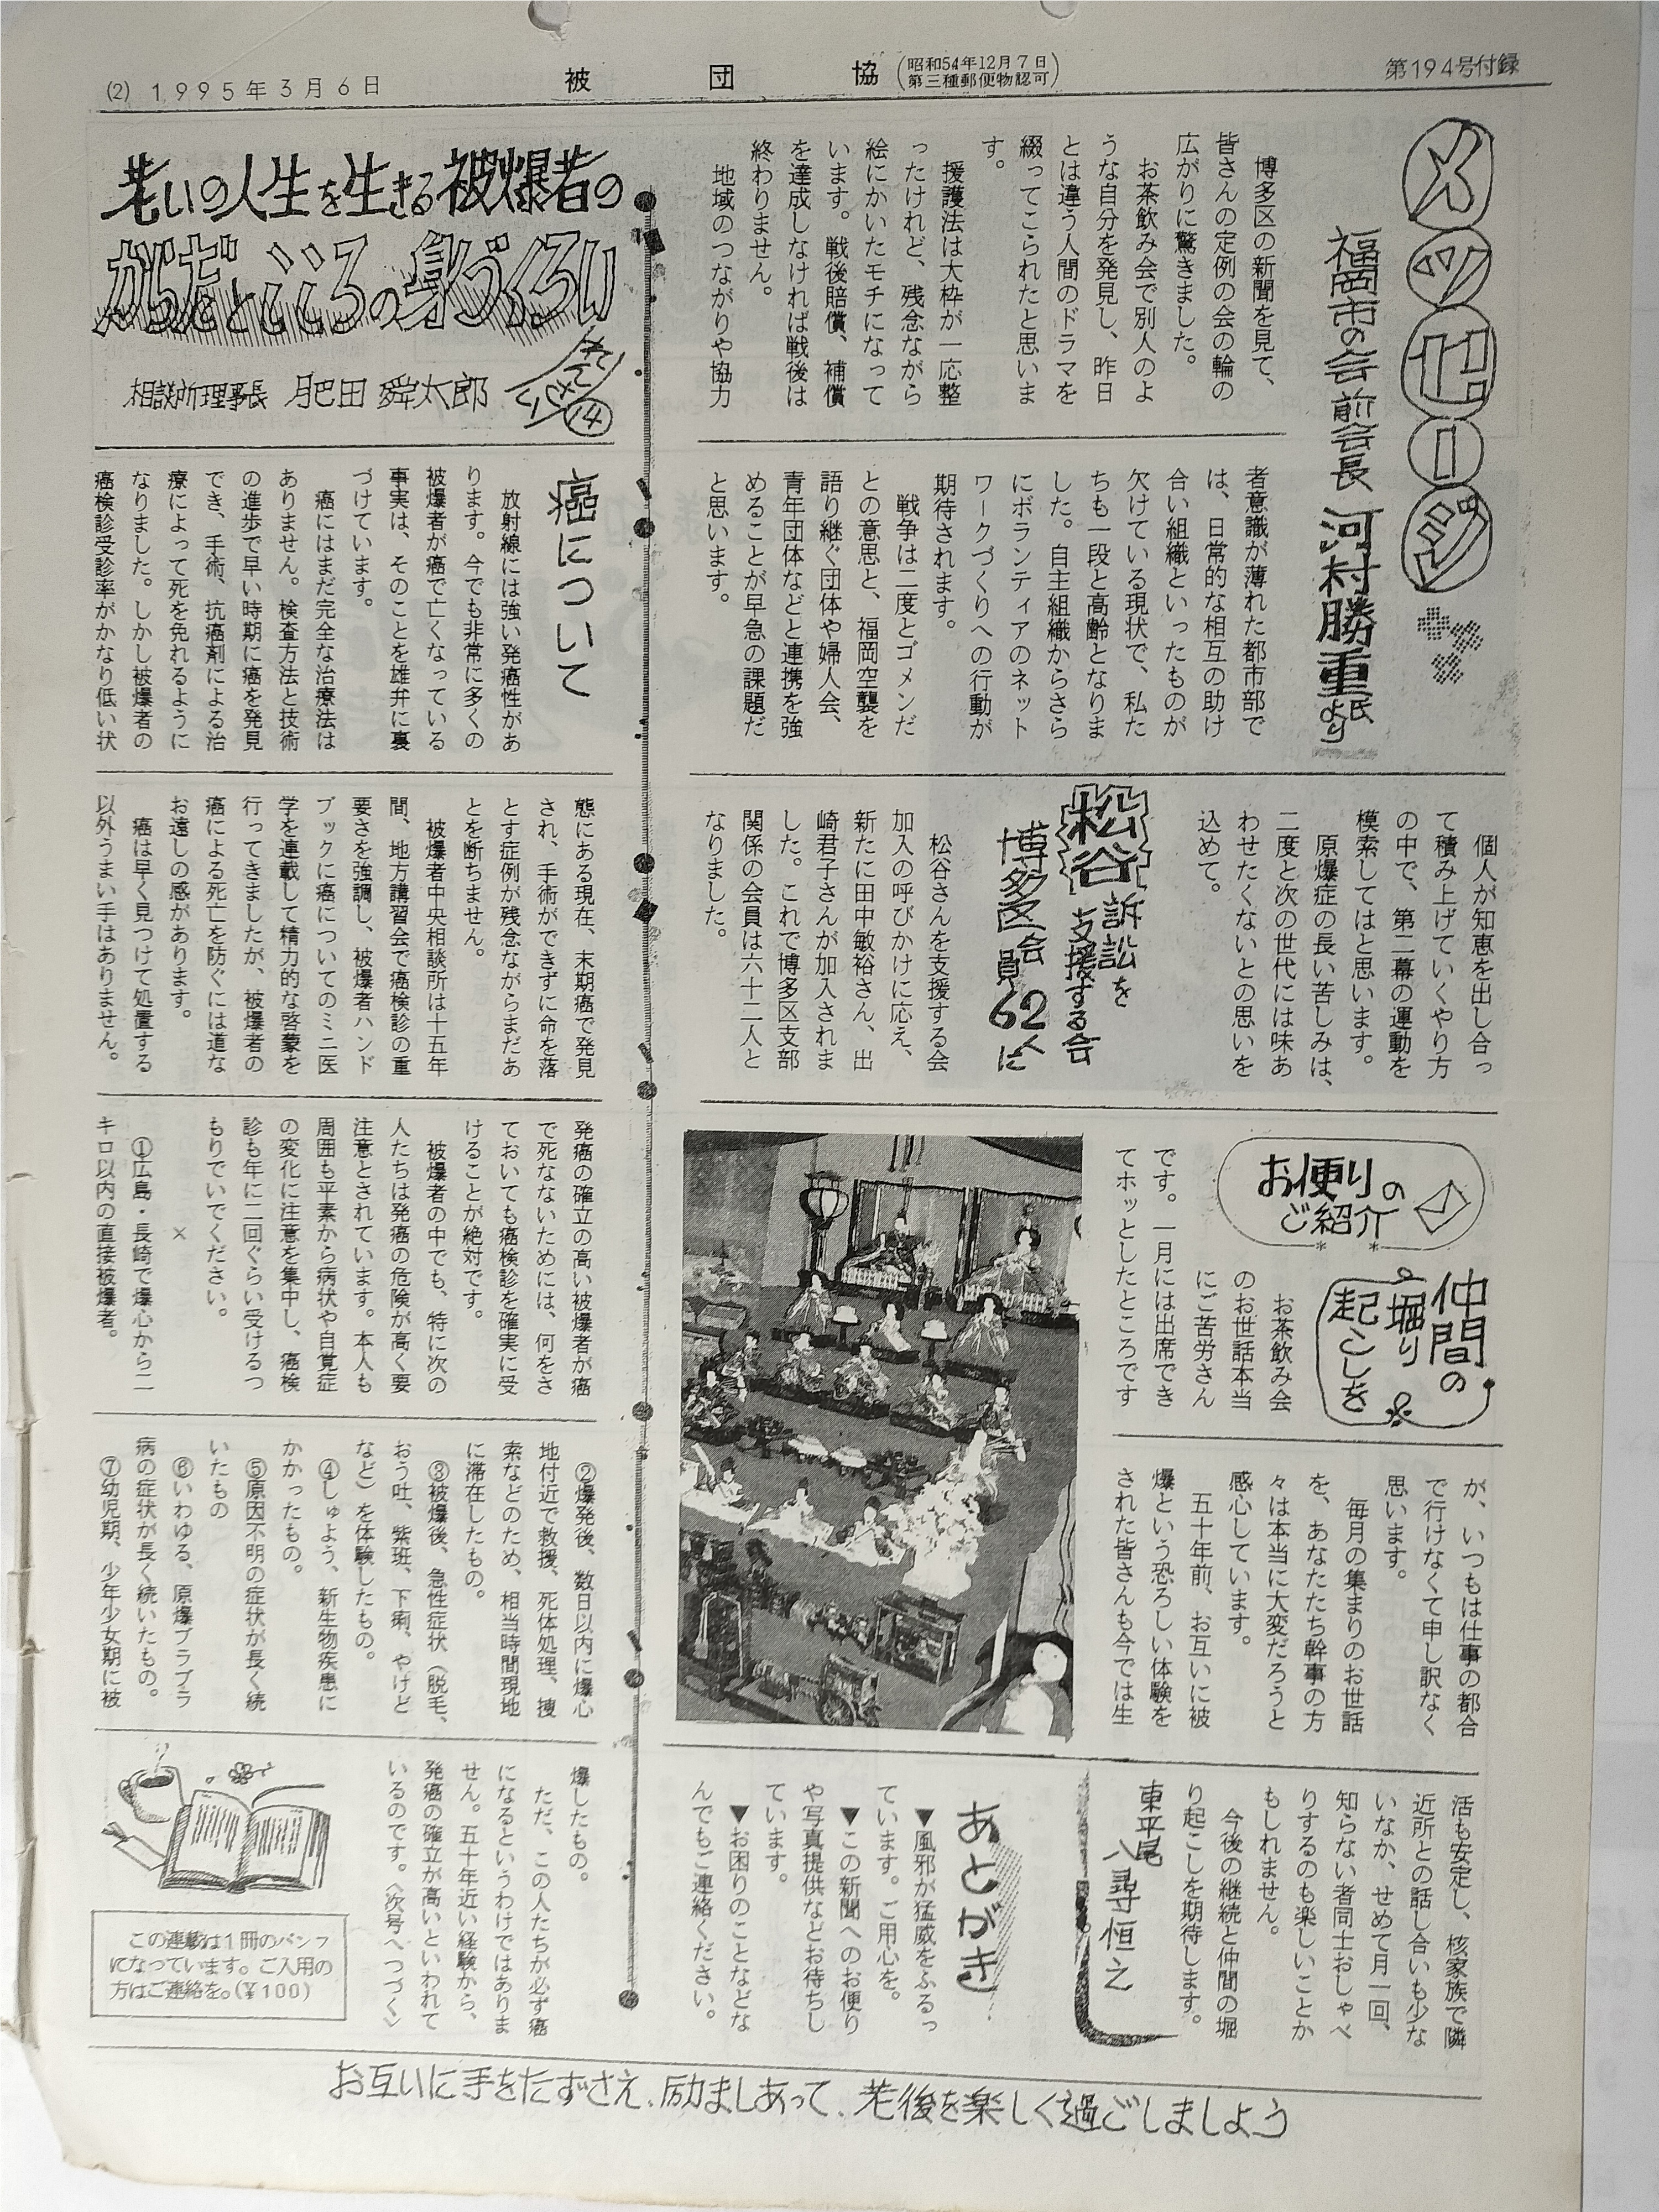 (2) 1995年3月6日
被団協
(昭和54年12月7日
第三種郵便物認可)
第194号付録
メッセージ
福岡市の会 前会長 河村勝重氏より
博多区の新聞を見て、
皆さんの定例の会の輪の
広がりに驚きました。
お茶飲み会で別人のよ
うな自分を発見し、昨日
とは違う人間のドラマを
綴ってこられたと思いま
す。
援護法は大枠が一応整
ったけれど、残念ながら
絵にかいたモチになって
います。戦後賠償、補償
を達成しなければ戦後は
終わりません。
地域のつながりや協力
者意識が薄れた都市部で
は、日常的な相互の助け
合い組織といったものが
欠けている現状で、私た
ちも一段と高齢となりま
した。自主組織からさら
にボランティアのネット
ワークづくりへの行動が
期待されます。
戦争は二度とゴメンだ
との意思と、福岡空襲を
語り継ぐ団体や婦人会、
青年団体などと連携を強
めることが早急の課題だ
と思います。
個人が知恵を出し合っ
て積み上げていくやり方
の中で、第二幕の運動を
模索してはと思います。
原爆症の長い苦しみは、
二度と次の世代には味あ
わせたくないとの思いを
込めて。
松谷訴訟を
支援する会
博多区会員62人に
松谷さんを支援する会
加入の呼びかけに応え、
新たに田中敏裕さん、出
崎君子さんが加入されま
した。これで博多区支部
関係の会員は六十二人と
なりました。
お便りの
ご紹介
仲間の
堀り
起こしを
お茶飲み会
のお世話本当
にご苦労さん
です。一月には出席でき
てホッとしたところです
が、いつもは仕事の都合
で行けなくて申し訳なく
思います。
毎月の集まりのお世話
を、あなたたち幹事の方
々は本当に大変だろうと
感心しています。
五十年前、お互いに被
爆という恐ろしい体験を
された皆さんも今では生
活も安定し、核家族で隣
近所との話し合いも少な
いなか、せめて月一回、
知らない者同士おしゃべ
りするのも楽しいことか
もしれません。
今後の継続と仲間の堀
り起こしを期待します。
東平尾
八尋恒之
あとがき
▼風邪が猛威をふるっ
ています。ご用心を。
▼この新聞へのお便り
や写真提供などお待ちし
ています。
▼お困りのことなどな
んでもご連絡ください。
老いの人生を生きる被爆者の
からだとこころの身づくろい
れんさい⑭
相談所理事長 肥田舜太郎
癌について
放射線には強い発癌性があ
ります。今でも非常に多くの
被爆者が癌で亡くなっている
事実は、そのことを雄弁に裏
づけています。
癌にはまだ完全な治療法は
ありません。検査方法と技術
の進歩で早い時期に癌を発見
でき、手術、抗癌剤による治
療によって死を免れるように
なりました。しかし被爆者の
癌検診受診率がかなり低い状
態にある現在、末期癌で発見
され、手術ができずに命を落
とす症例が残念ながらまだあ
とを断ちません。
被爆者中央相談所は十五年
間、地方講習会で癌検診の重
要さを強調し、被爆者ハンド
ブックに癌についてのミニ医
学を連載して精力的な啓蒙を
行ってきましたが、被爆者の
癌による死亡を防ぐには道な
お遠しの感があります。
癌は早く見つけて処置する
以外うまい手はありません。
発癌の確立の高い被爆者が癌
で死なないためには、何をさ
ておいても癌検診を確実に受
けることが絶対です。
被爆者の中でも、特に次の
人たちは発癌の危険が高く要
注意とされています。本人も
周囲も平素から病状や自覚症
の変化に注意を集中し、癌検
診も年に二回ぐらい受けるつ
もりでいでください。
×
①広島・長崎で爆心から二
キロ以内の直接被爆者。
②爆発後、数日以内に爆心
地付近で救援、死体処理、捜
索などのため、相当時間現地
に滞在したもの。
③被爆後、急性症状（脱毛、
おう吐、紫斑、下痢、やけど
など）を体験したもの。
④しゅよう、新生物疾患に
かかったもの。
⑤原因不明の症状が長く続
いたもの
⑥いわゆる、原爆ブラブラ
病の症状が長く続いたもの。
⑦幼児期、少年少女期に被
爆したもの。
ただ、この人たちが必ず癌
になるというわけではありま
せん。五十年近い経験から、
発癌の確立が高いといわれて
いるのです。〈次号へつづく〉
この連載は1冊のパンフ
になっています。ご入用の
方はご連絡を。(¥100)
お互いに手をたずさえ、励ましあって、老後を楽しく過ごしましょう